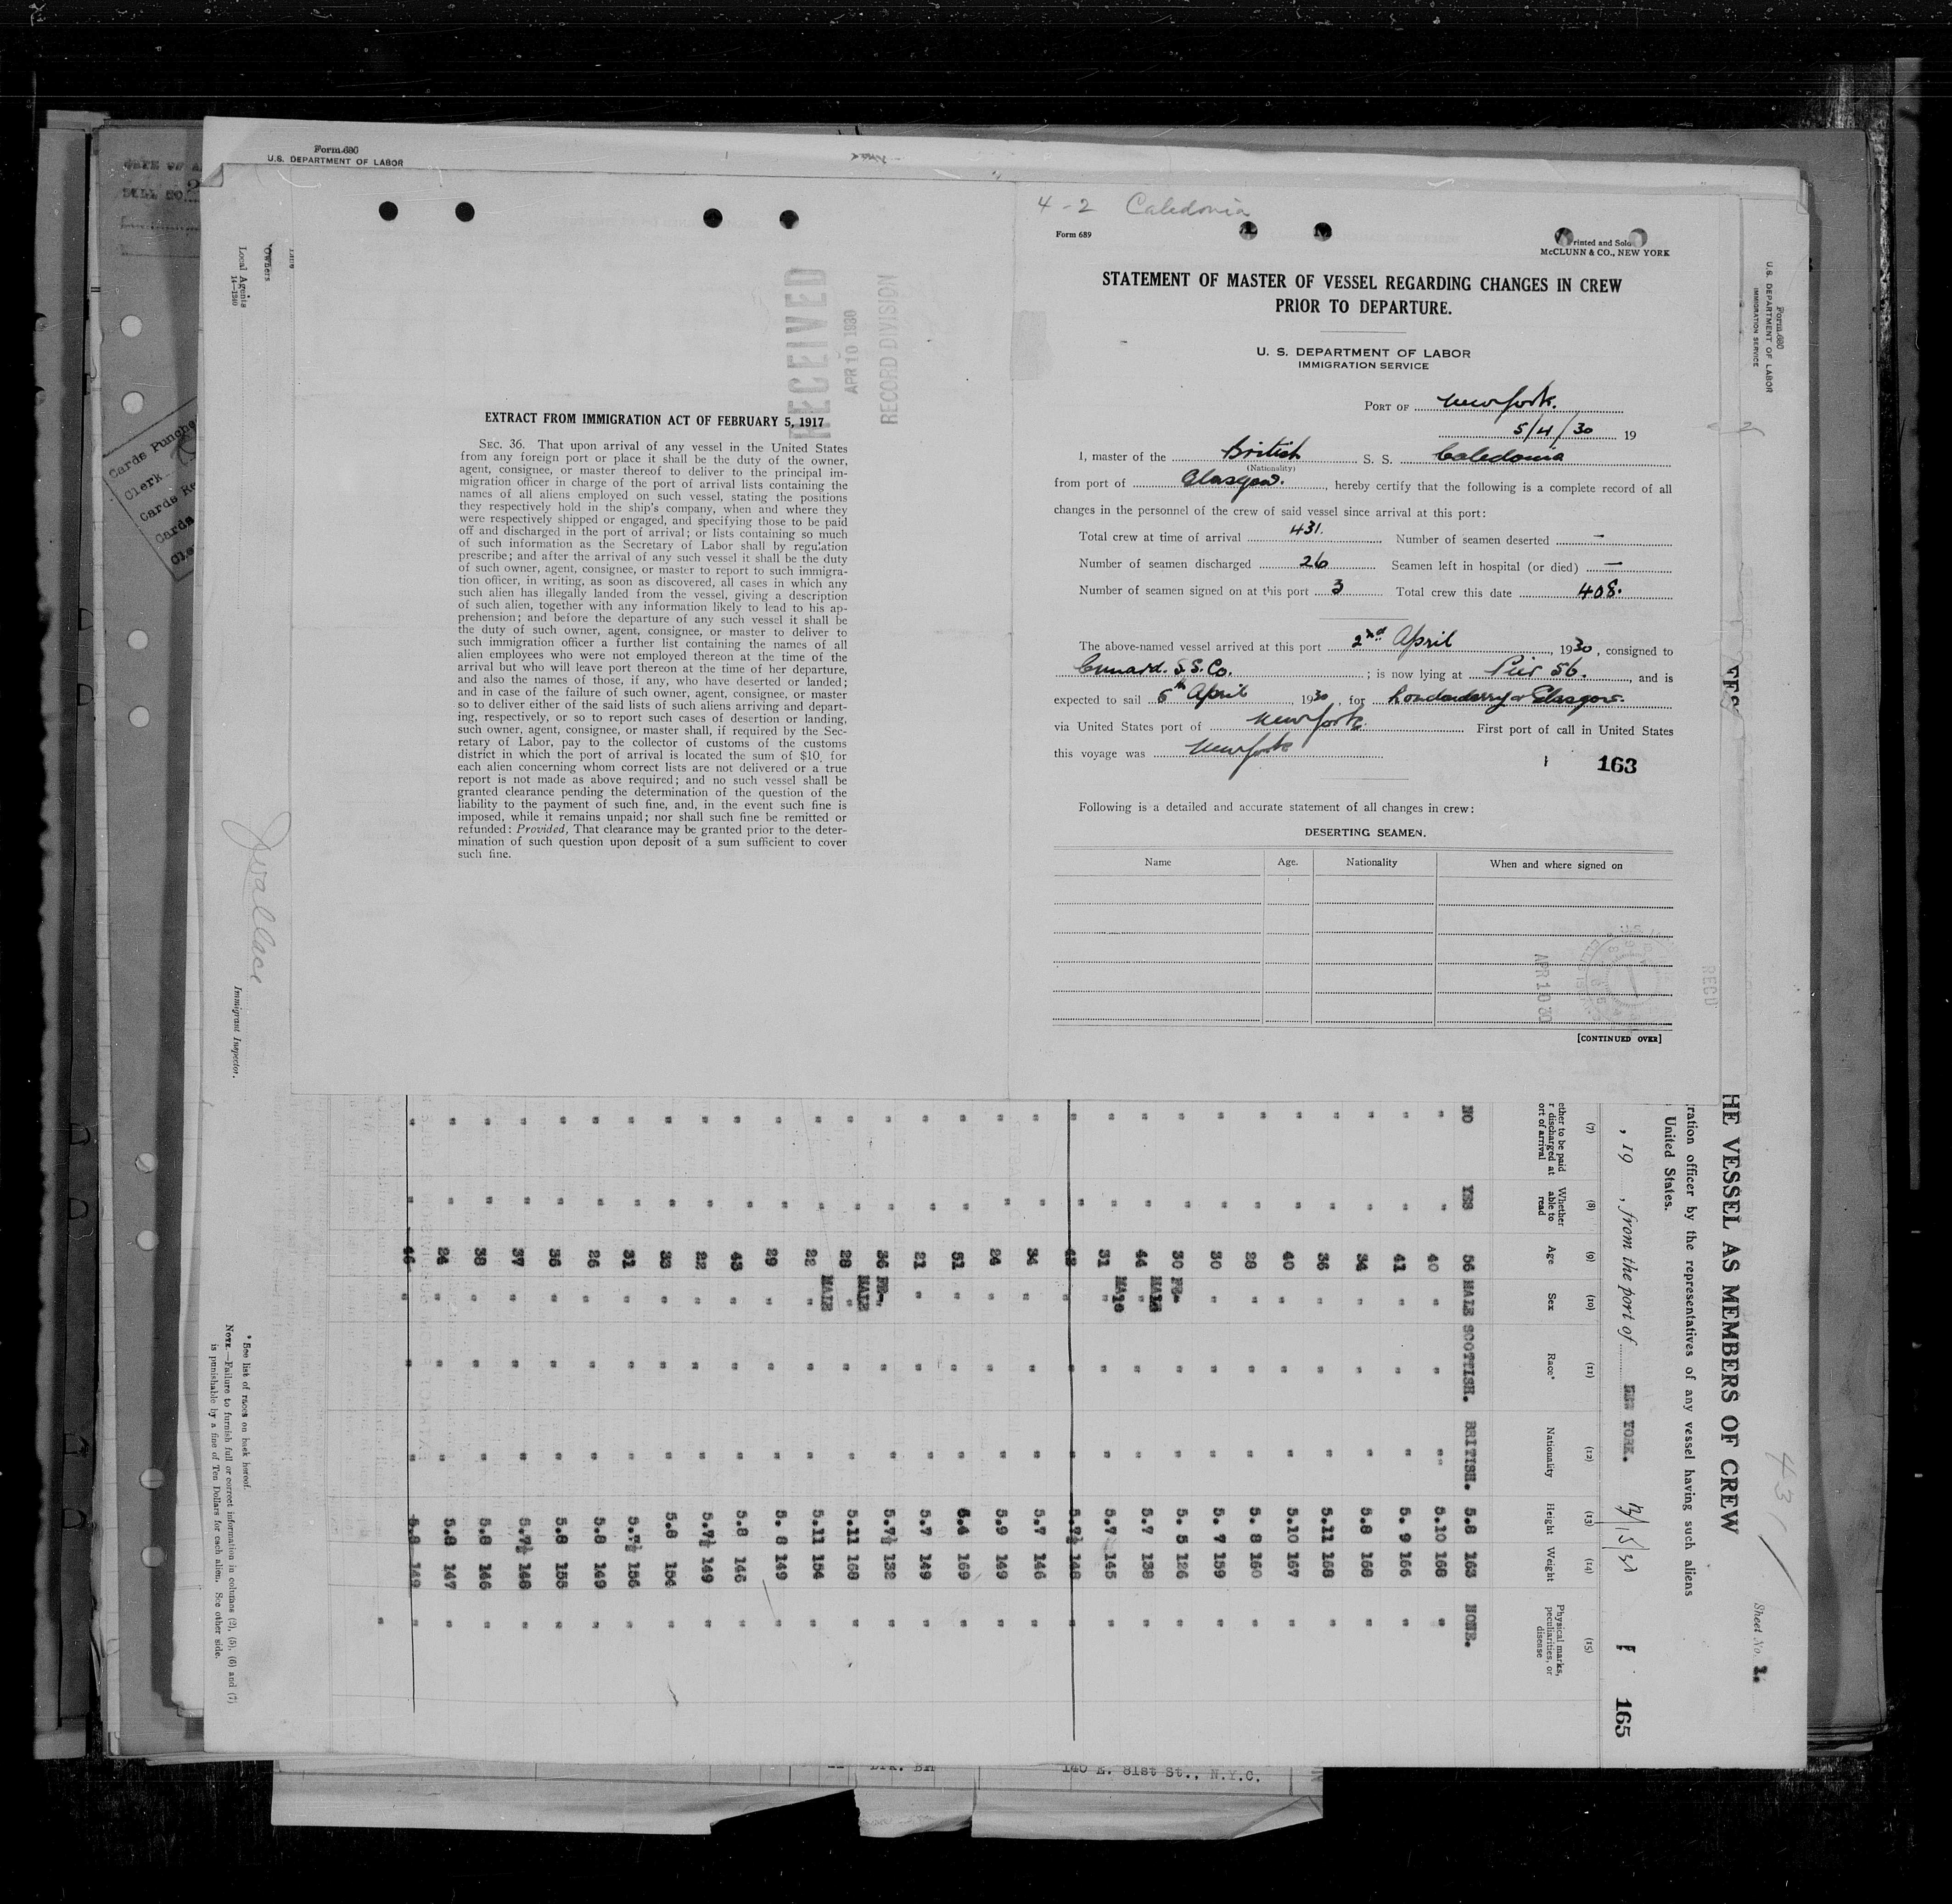 Form 680
U.S. DEPARTMENT OF LABOR
Owners
Local Agents
14—1240
RECEIVED
APR 10 1930
RECORD DIVISION
EXTRACT FROM IMMIGRATION ACT OF FEBRUARY 5, 1917
SEC. 36. That upon arrival of any vessel in the United States
from any foreign port or place it shall be the duty of the owner,
agent, consignee, or master thereof to deliver to the principal im-
migration officer in charge of the port of arrival lists containing the
names of all aliens employed on such vessel, stating the positions
they respectively hold in the ship's company, when and where they
were respectively shipped or engaged, and specifying those to be paid
off and discharged in the port of arrival; or lists containing so much
of such information as the Secretary of Labor shall by regulation
prescribe; and after the arrival of any such vessel it shall be the duty
of such owner, agent, consignee, or master to report to such immigra-
tion officer, in writing, as soon as discovered, all cases in which any
such alien has illegally landed from the vessel, giving a description
of such alien, together with any information likely to lead to his ap-
prehension; and before the departure of any such vessel it shall be
the duty of such owner, agent, consignee, or master to deliver to
such immigration officer a further list containing the names of all
alien employees who were not employed thereon at the time of the
arrival but who will leave port thereon at the time of her departure,
and also the names of those, if any, who have deserted or landed;
and in case of the failure of such owner, agent, consignee, or master
so to deliver either of the said lists of such aliens arriving and depart-
ing, respectively, or so to report such cases of desertion or landing,
such owner, agent, consignee, or master shall, if required by the Sec-
retary of Labor, pay to the collector of customs of the customs
district in which the port of arrival is located the sum of $10 for
each alien concerning whom correct lists are not delivered or a true
report is not made as above required; and no such vessel shall be
granted clearance pending the determination of the question of the
liability to the payment of such fine, and, in the event such fine is
imposed, while it remains unpaid; nor shall such fine be remitted or
refunded: Provided, That clearance may be granted prior to the deter-
mination of such question upon deposit of a sum sufficient to cover
such fine.
4-2 Caledonia
Form 689
Printed and Sold
McCLUNN & CO., NEW YORK
STATEMENT OF MASTER OF VESSEL REGARDING CHANGES IN CREW
PRIOR TO DEPARTURE.
U. S. DEPARTMENT OF LABOR
IMMIGRATION SERVICE
PORT OF New York.
5/4/30 19
I, master of the British S. S. Caledonia
(Nationality)
from port of Glasgow., hereby certify that the following is a complete record of all
changes in the personnel of the crew of said vessel since arrival at this port:
Total crew at time of arrival 431. Number of seamen deserted —
Number of seamen discharged 26 Seamen left in hospital (or died) —
Number of seamen signed on at this port 3 Total crew this date 408.
The above-named vessel arrived at this port 2nd April, 1930, consigned to
Cunard. S.S. Co.; is now lying at Pier 56., and is
expected to sail 5th April 1930, for Londonderry & Glasgow.
via United States port of New York. First port of call in United States
this voyage was New York
163
Following is a detailed and accurate statement of all changes in crew:
DESERTING SEAMEN.
Name Age. Nationality When and where signed on
APR 10 30
REC'D
[CONTINUED OVER]
Form 680
U.S. DEPARTMENT OF LABOR
IMMIGRATION SERVICE
431
Sheet No. 1.
HE VESSEL AS MEMBERS OF CREW
ration officer by the representatives of any vessel having such aliens
United States.
, 19 , from the port of NEW YORK.
165
(7) (8) (9) (10) (11) (12) (13) (14) (15)
ether to be paid
r discharged at
ort of arrival
Whether able to read
Age
Sex
Race*
Nationality
Height
Weight
Physical marks, peculiarities, or disease
NO YES 56 MALE SCOTTISH. BRITISH. 5.8 163 NONE.
" " 40 " " " 5.10 168 "
" " 41 " " " 5.9 166 "
" " 34 " " " 5.8 168 "
" " 36 " " " 5.11 168 "
" " 40 " " " 5.10 167 "
" " 28 " " " 5.8 160 "
" " 30 " " " 5.7 159 "
" " 30 FE- " " 5.5 126 "
" " 44 MALE " " 5.7 138 "
" " 31 MALE " " 5.7 145 "
" " 42 " " " 5.7½ 148 "
" " 34 " " " 5.7 146 "
" " 24 " " " 5.9 149 "
" " 51 " " " 5.4 169 "
" " 21 " " " 5.7 149 "
" " 36 FE- " " 5.7½ 132 "
" " 28 MALE " " 5.11 158 "
" " 22 MALE " " 5.11 154 "
" " 29 " " " 5.8 149 "
" " 43 " " " 5.8 146 "
" " 22 " " " 5.7½ 149 "
" " 33 " " " 5.8 154 "
" " 31 " " " 5.7½ 156 "
" " 26 " " " 5.8 149 "
" " 36 " " " 5.8 155 "
" " 37 " " " 5.7½ 148 "
" " 38 " " " 5.8 146 "
" " 24 " " " 5.8 147 "
" " 46 " " " 5.8 149 "
J Wallace
Immigrant Inspector.
*See list of races on back hereof.
NOTE.—Failure to furnish full or correct information in columns (2), (5), (6) and (7)
is punishable by a fine of Ten Dollars for each alien. See other side.
Cards Punche
Clerk
Cards Re
Cards
Cle
140 E. 81st St., N.Y.C.